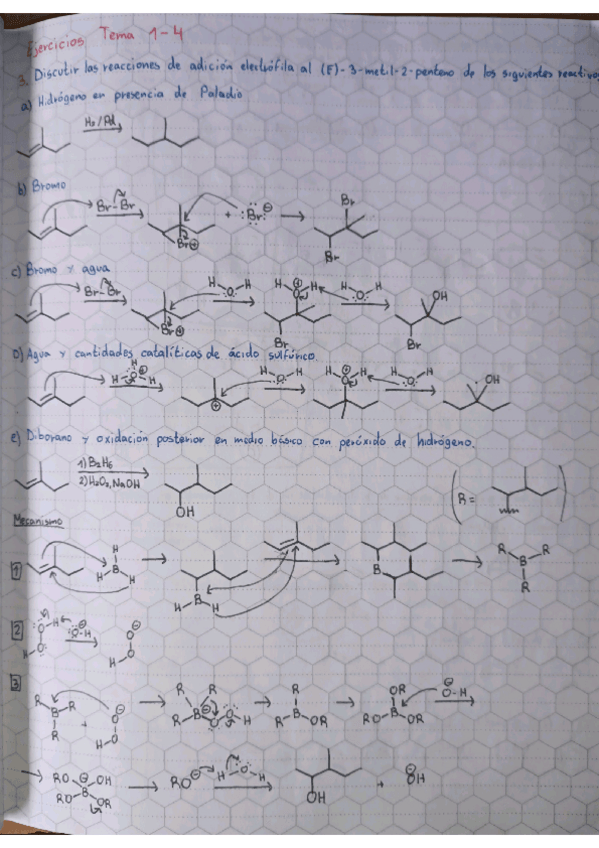 Ejercicios Tema 1-4
3. Discutir las reacciones de adición electrófila al (E)-3-metil-2-penteno de los siguientes reactivos
a) Hidrógeno en presencia de Paladio
H₂/Pd
b) Bromo
Br-Br + :Br:⊖ Br
Br⊕ Br
c) Bromo y agua
Br-Br H O H H O H H O H OH
Br⊕ Br Br
D) Agua y cantidades catalíticas de ácido sulfúrico.
H O H H ⊕ H O H H O H H O H OH
⊕
e) Diborano y oxidación posterior en medio básico con peróxido de hidrógeno.
1) B₂H₆
2) H₂O₂, NaOH
OH
(R = )
Mecanismo
1 H B H H H B H B R B R R
2 H O O H ⊖ O-H ⊖ O O H
3 R B R R + ⊖ O O H R R R B⊖ O O H R B R OR OR RO B OR ⊖ O-H
RO ⊖ OH RO B OR RO⊖ H O H OH + ⊖ OH